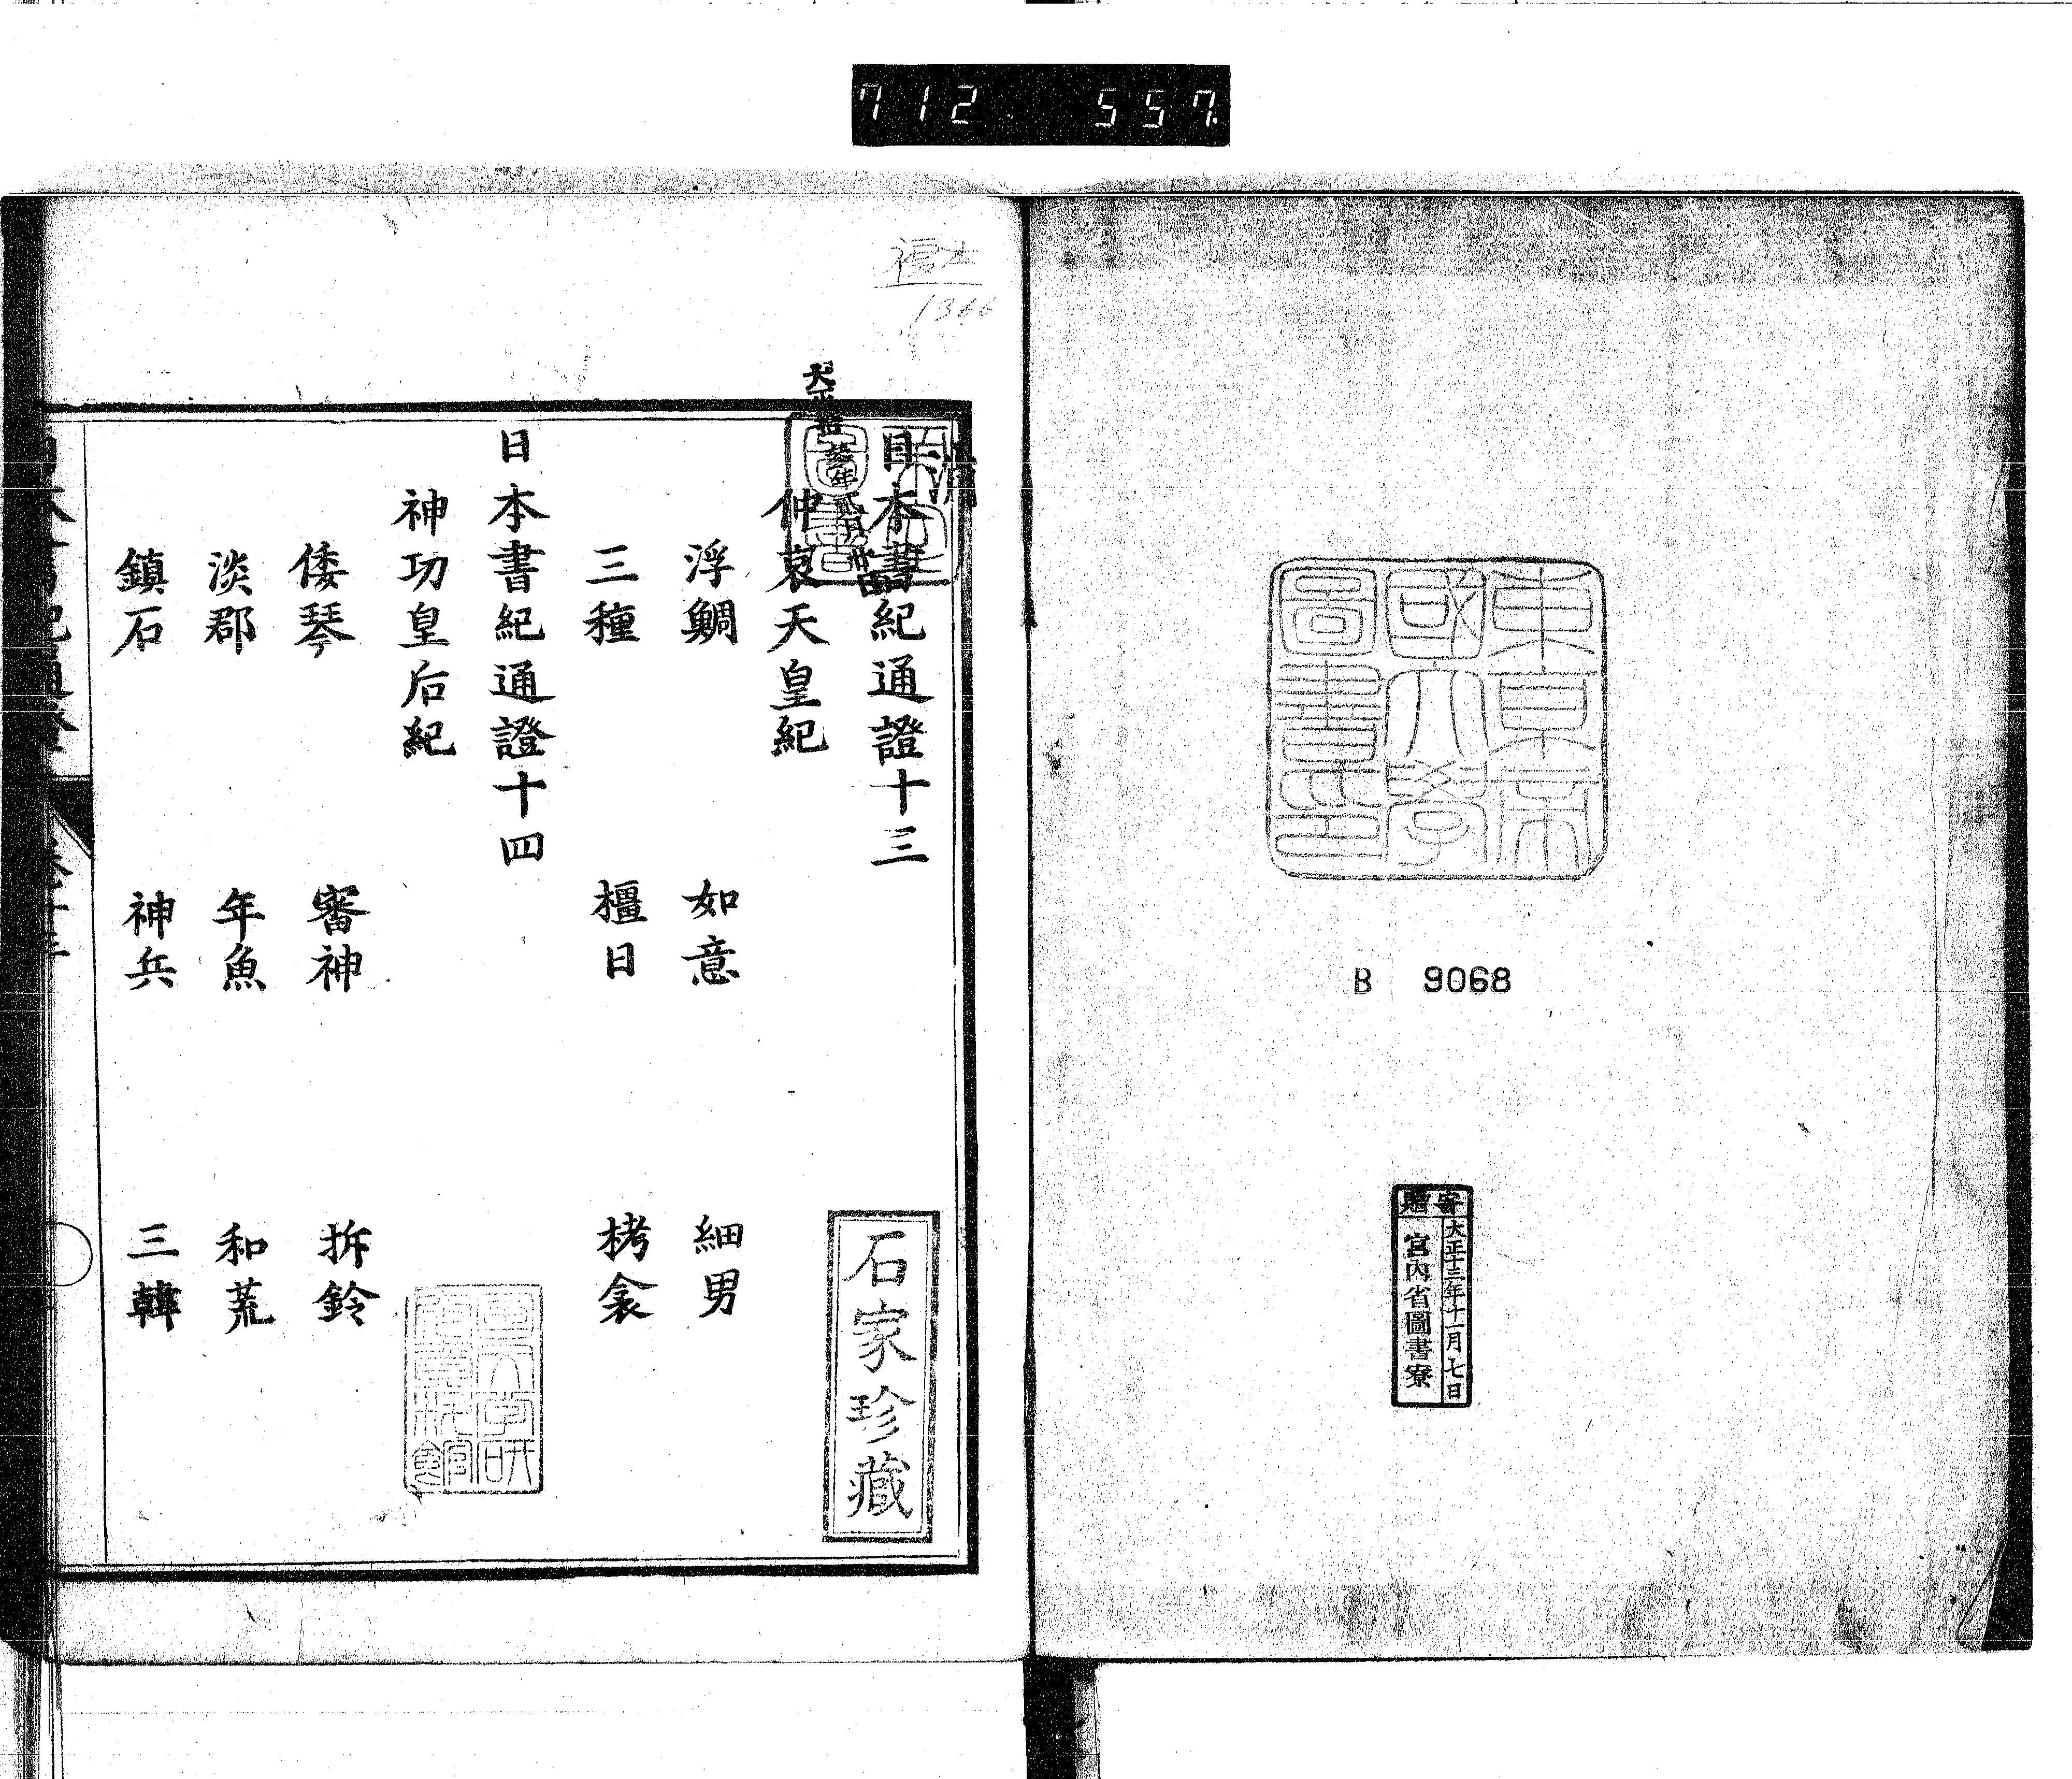 712 557
東京帝
國大學
圖書印
B 9068
寄贈
大正十三年十一月七日
宮內省圖書寮
複本
1366
日本書紀通證十三
仲哀天皇紀
浮鯛 如意 細男
三種 橿日 栲衾
日本書紀通證十四
神功皇后紀
倭琴 審神 拆鈴
淡郡 年魚 和荒
鎮石 神兵 三韓
石家珍藏